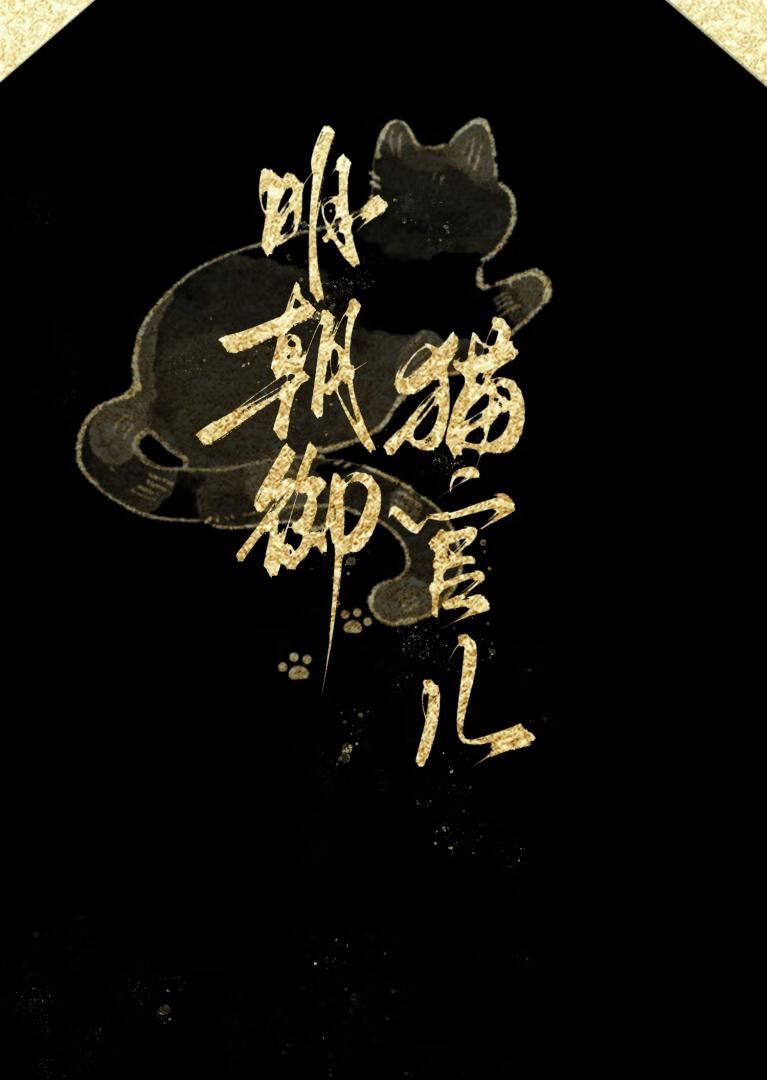 明朝御
猫官儿